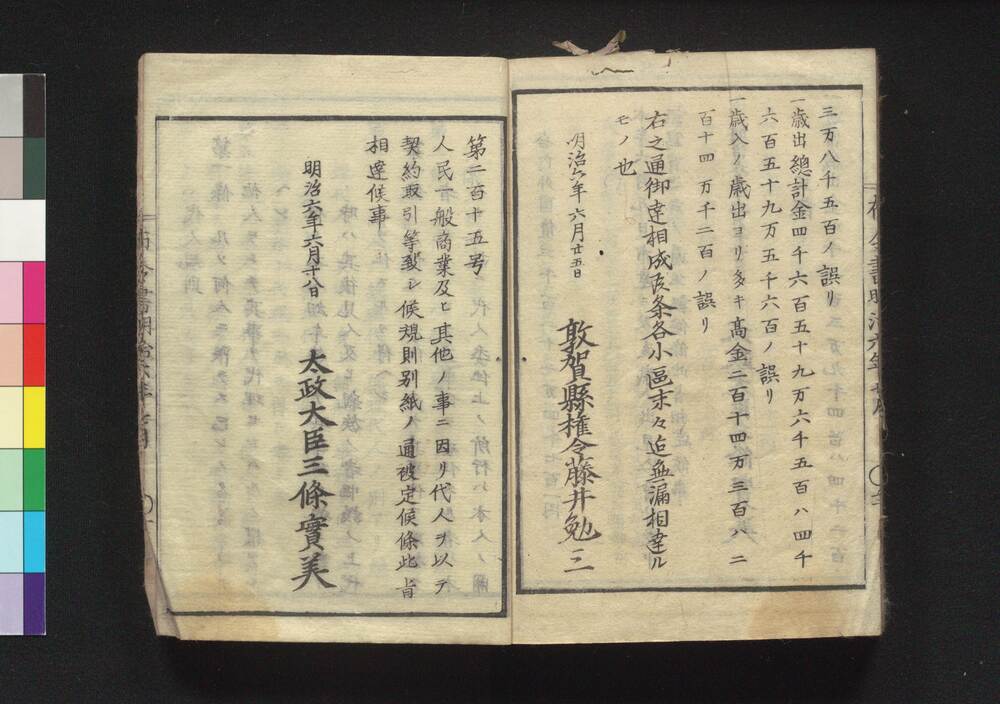 三万八千五百ノ誤リ
一歳出總計金四千六百五十九万六千五百ハ四千
六百五十九万五千六百ノ誤リ
一歳入ノ歳出ヨリ多キ高金二百十四万三百ハ二
百十四万千二百ノ誤リ
右之通御達相成候条各小區末々迄無漏相達ル
モノ也
明治六年六月廿五日
敦賀縣権令藤井勉三
第二百十五号
人民一般商業及ヒ其他ノ事ニ因リ代人ヲ以テ
契約取引等致シ候規則別紙ノ通被定候條此旨
相達候事
明治六年六月十八日
太政大臣三條實美